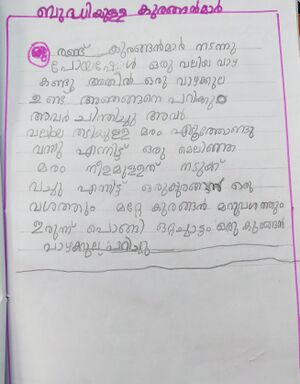 ബുദ്ധിയുള്ള കുരങ്ങൻമാർ
ഒരു രണ്ട് കുരങ്ങൻമാർ നടന്നു
പോയപ്പോൾ ഒരു വലിയ വാഴ
കണ്ടു അതിൽ ഒരു വാഴക്കുല
ഉണ്ട് അങ്ങനെ പറിക്കും
അവർ ചിന്തിച്ചു അവർ
വലിയ തടിയുള്ള മരം എടുത്തോണ്ടു
വന്നു എന്നിട്ട് ഒരു മെലിഞ്ഞ
മരം നീളമുള്ളത് നടുക്ക്
വച്ചു എന്നിട്ട് ഒരുകുരങ്ങൻ ഒരു
വശത്തും മറ്റേ കുരങ്ങൻ മറുവശത്തും
ഇരുന്ന് പൊങ്ങി ഒറ്റച്ചാട്ടം ഒരു കുരങ്ങൻ
വാഴക്കുല പറിച്ചു